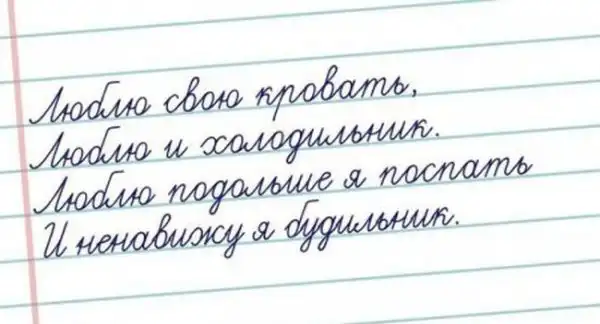 Люблю свою кровать,
Люблю и холодильник.
Люблю подольше я поспать
И ненавижу я будильник.